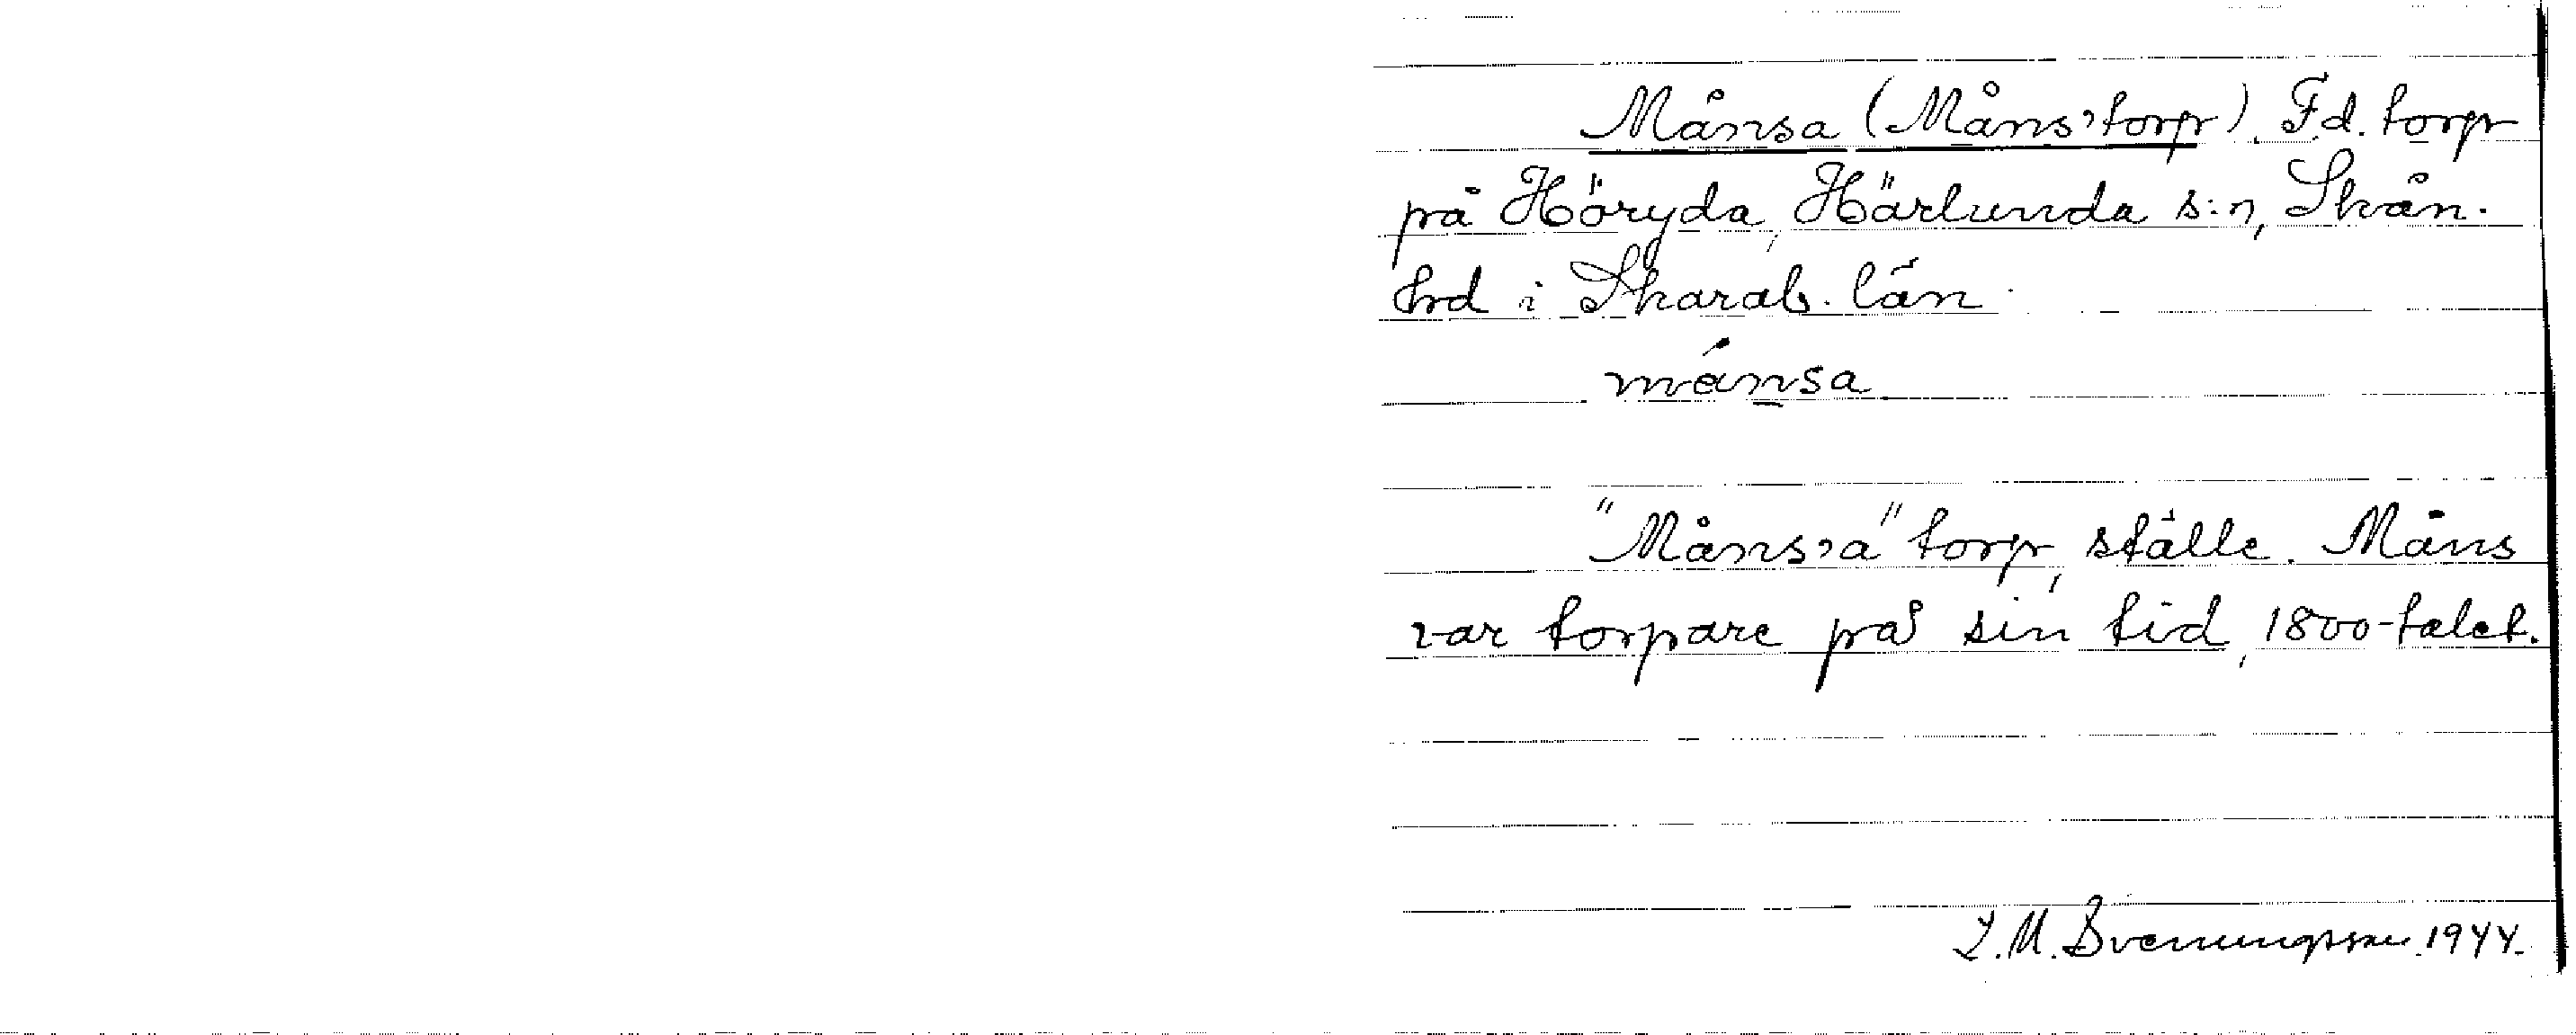 Månsa (Måns, torp). F.d. torp
på Höryda, Härlunda s:n, Skån.
hrd i Skarab. län.
månsa
"Måns,a" torp, ställe. Måns
var torpare på sin tid, 1800-talet.
L.M. Svenungsson 1944.